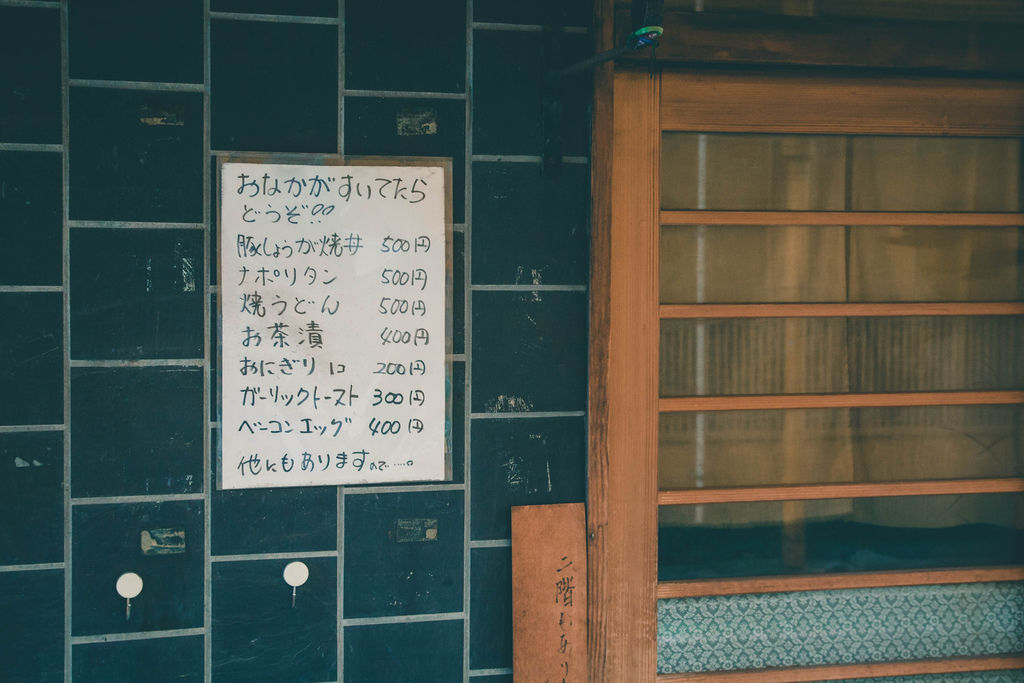 おなかがすいてたら
どうぞ!!
豚しょうが焼丼 500円
ナポリタン 500円
焼うどん 500円
お茶漬 400円
おにぎり 1コ 200円
ガーリックトースト 300円
ベーコンエッグ 400円
他にもありますので…。
二階もあり